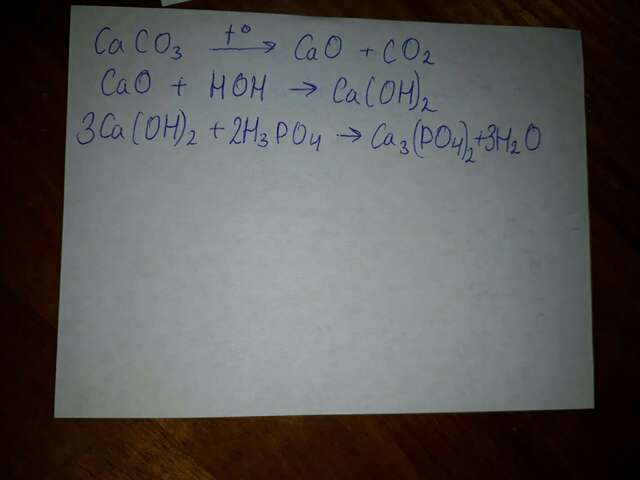 CaCO₃ →(t°) CaO + CO₂
CaO + HOH → Ca(OH)₂
3Ca(OH)₂ + 2H₃PO₄ → Ca₃(PO₄)₂ + 3H₂O